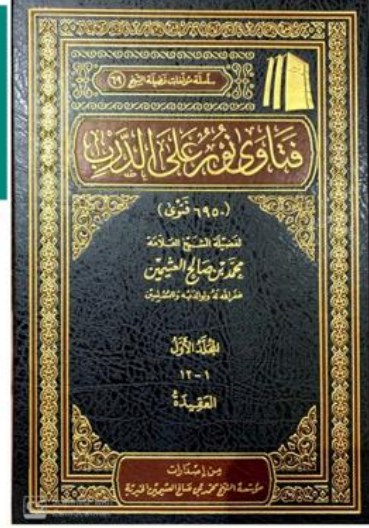 سلسلة مؤلفات فضيلة الشيخ (٦٩)
فتاوى نُورٌ عَلَى الدَّرْبِ
(٦٩٥٠ فتوى)
لفضيلة الشيخ العلامة
محمد بن صالح العثيمين
غفر الله له ولوالديه وللمسلمين
المجلد الأول
١-١٢
العقيدة
من إصدارات
مؤسسة الشيخ محمد بن صالح العثيمين الخيرية